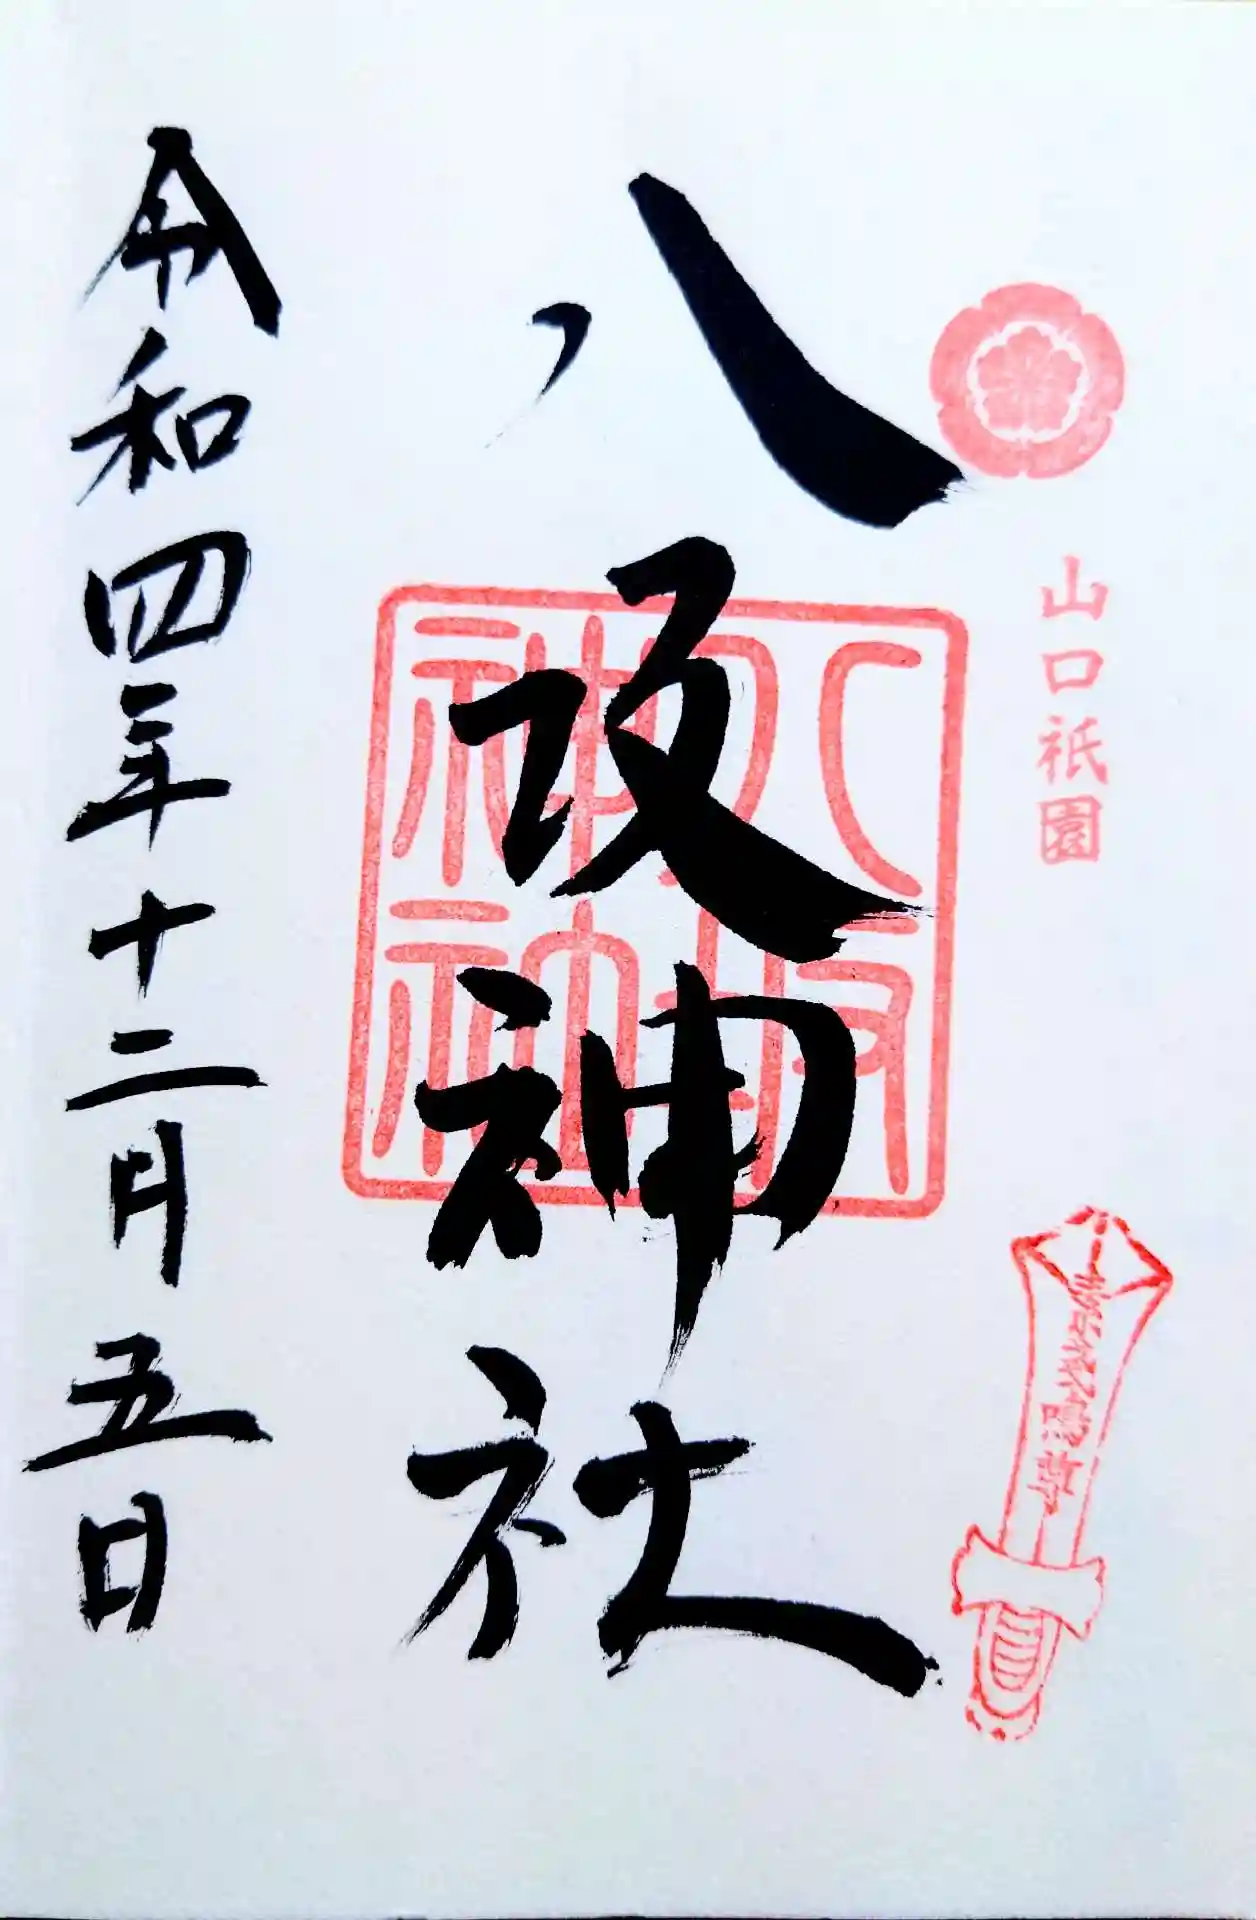 山口祇園
素戔嗚尊
八坂神社
八坂神社
令和四年十二月五日